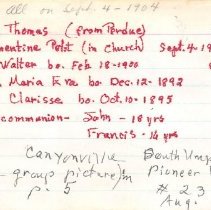 all on Sept. 4-1904
Thomas (from Perdue)
mentine Polst (in Church) Sept. 4-19
Walter bo. Feb 18-1900
Maria Eva bo Dec. 12-1892
Clarisse bo. Oct 10-1895
communion- John - 18 yrs
Francis - 14 yrs
Canyonville
group picture in
p. 5
South Umpq
Pioneer
# 23
Aug.